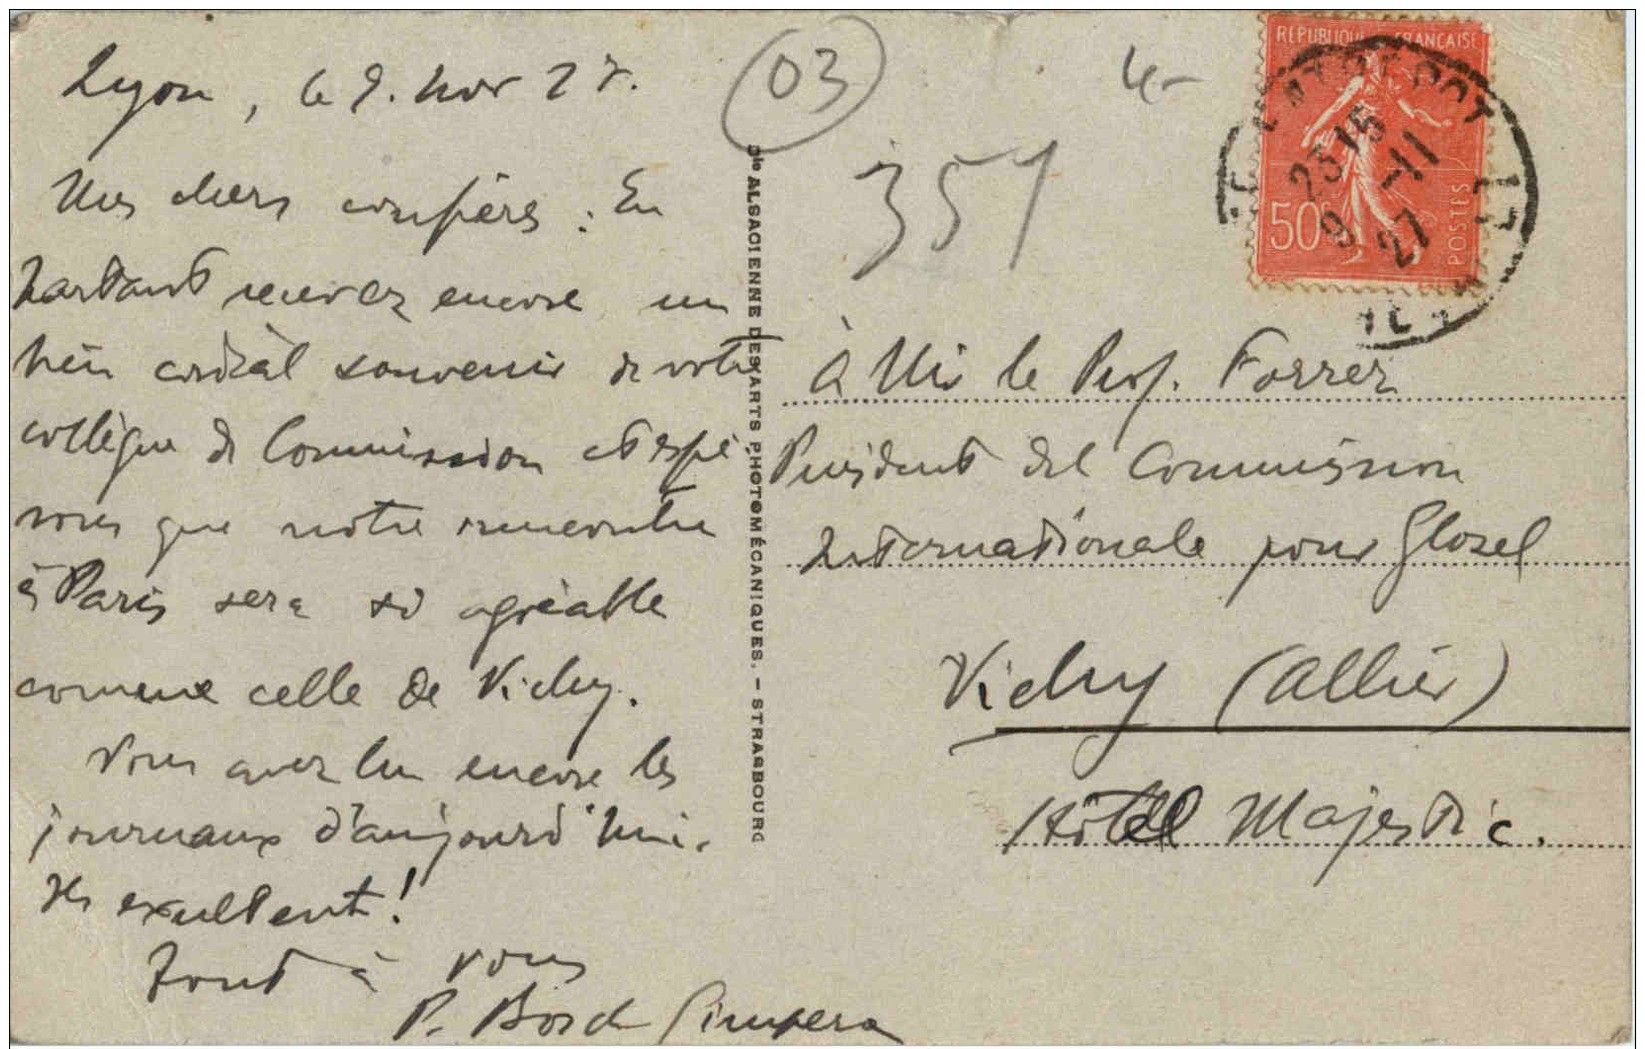 Lyon, le 9. Nov 27.
Mes chers confrères : En
partant recevez encore un
bien cordial souvenir de votre
collègue de Commission et espé
rons que notre rencontre
à Paris sera si agréable
comme celle de Vichy.
Vous avez lu encore les
journaux d'aujourd'hui.
Ils exultent!
Tout à vous
P. Bosch Gimpera
03
4-
351
Cie ALSACIENNE DES ARTS PHOTOMÉCANIQUES. - STRASBOURG
RÉPUBLIQUE FRANÇAISE
50c
POSTES
23 15
9 -11
27
À Mr le Prof. Forrer
Président de l Commission
Internationale pour Glozel
Vichy (Allier)
Hôtel Majestic.